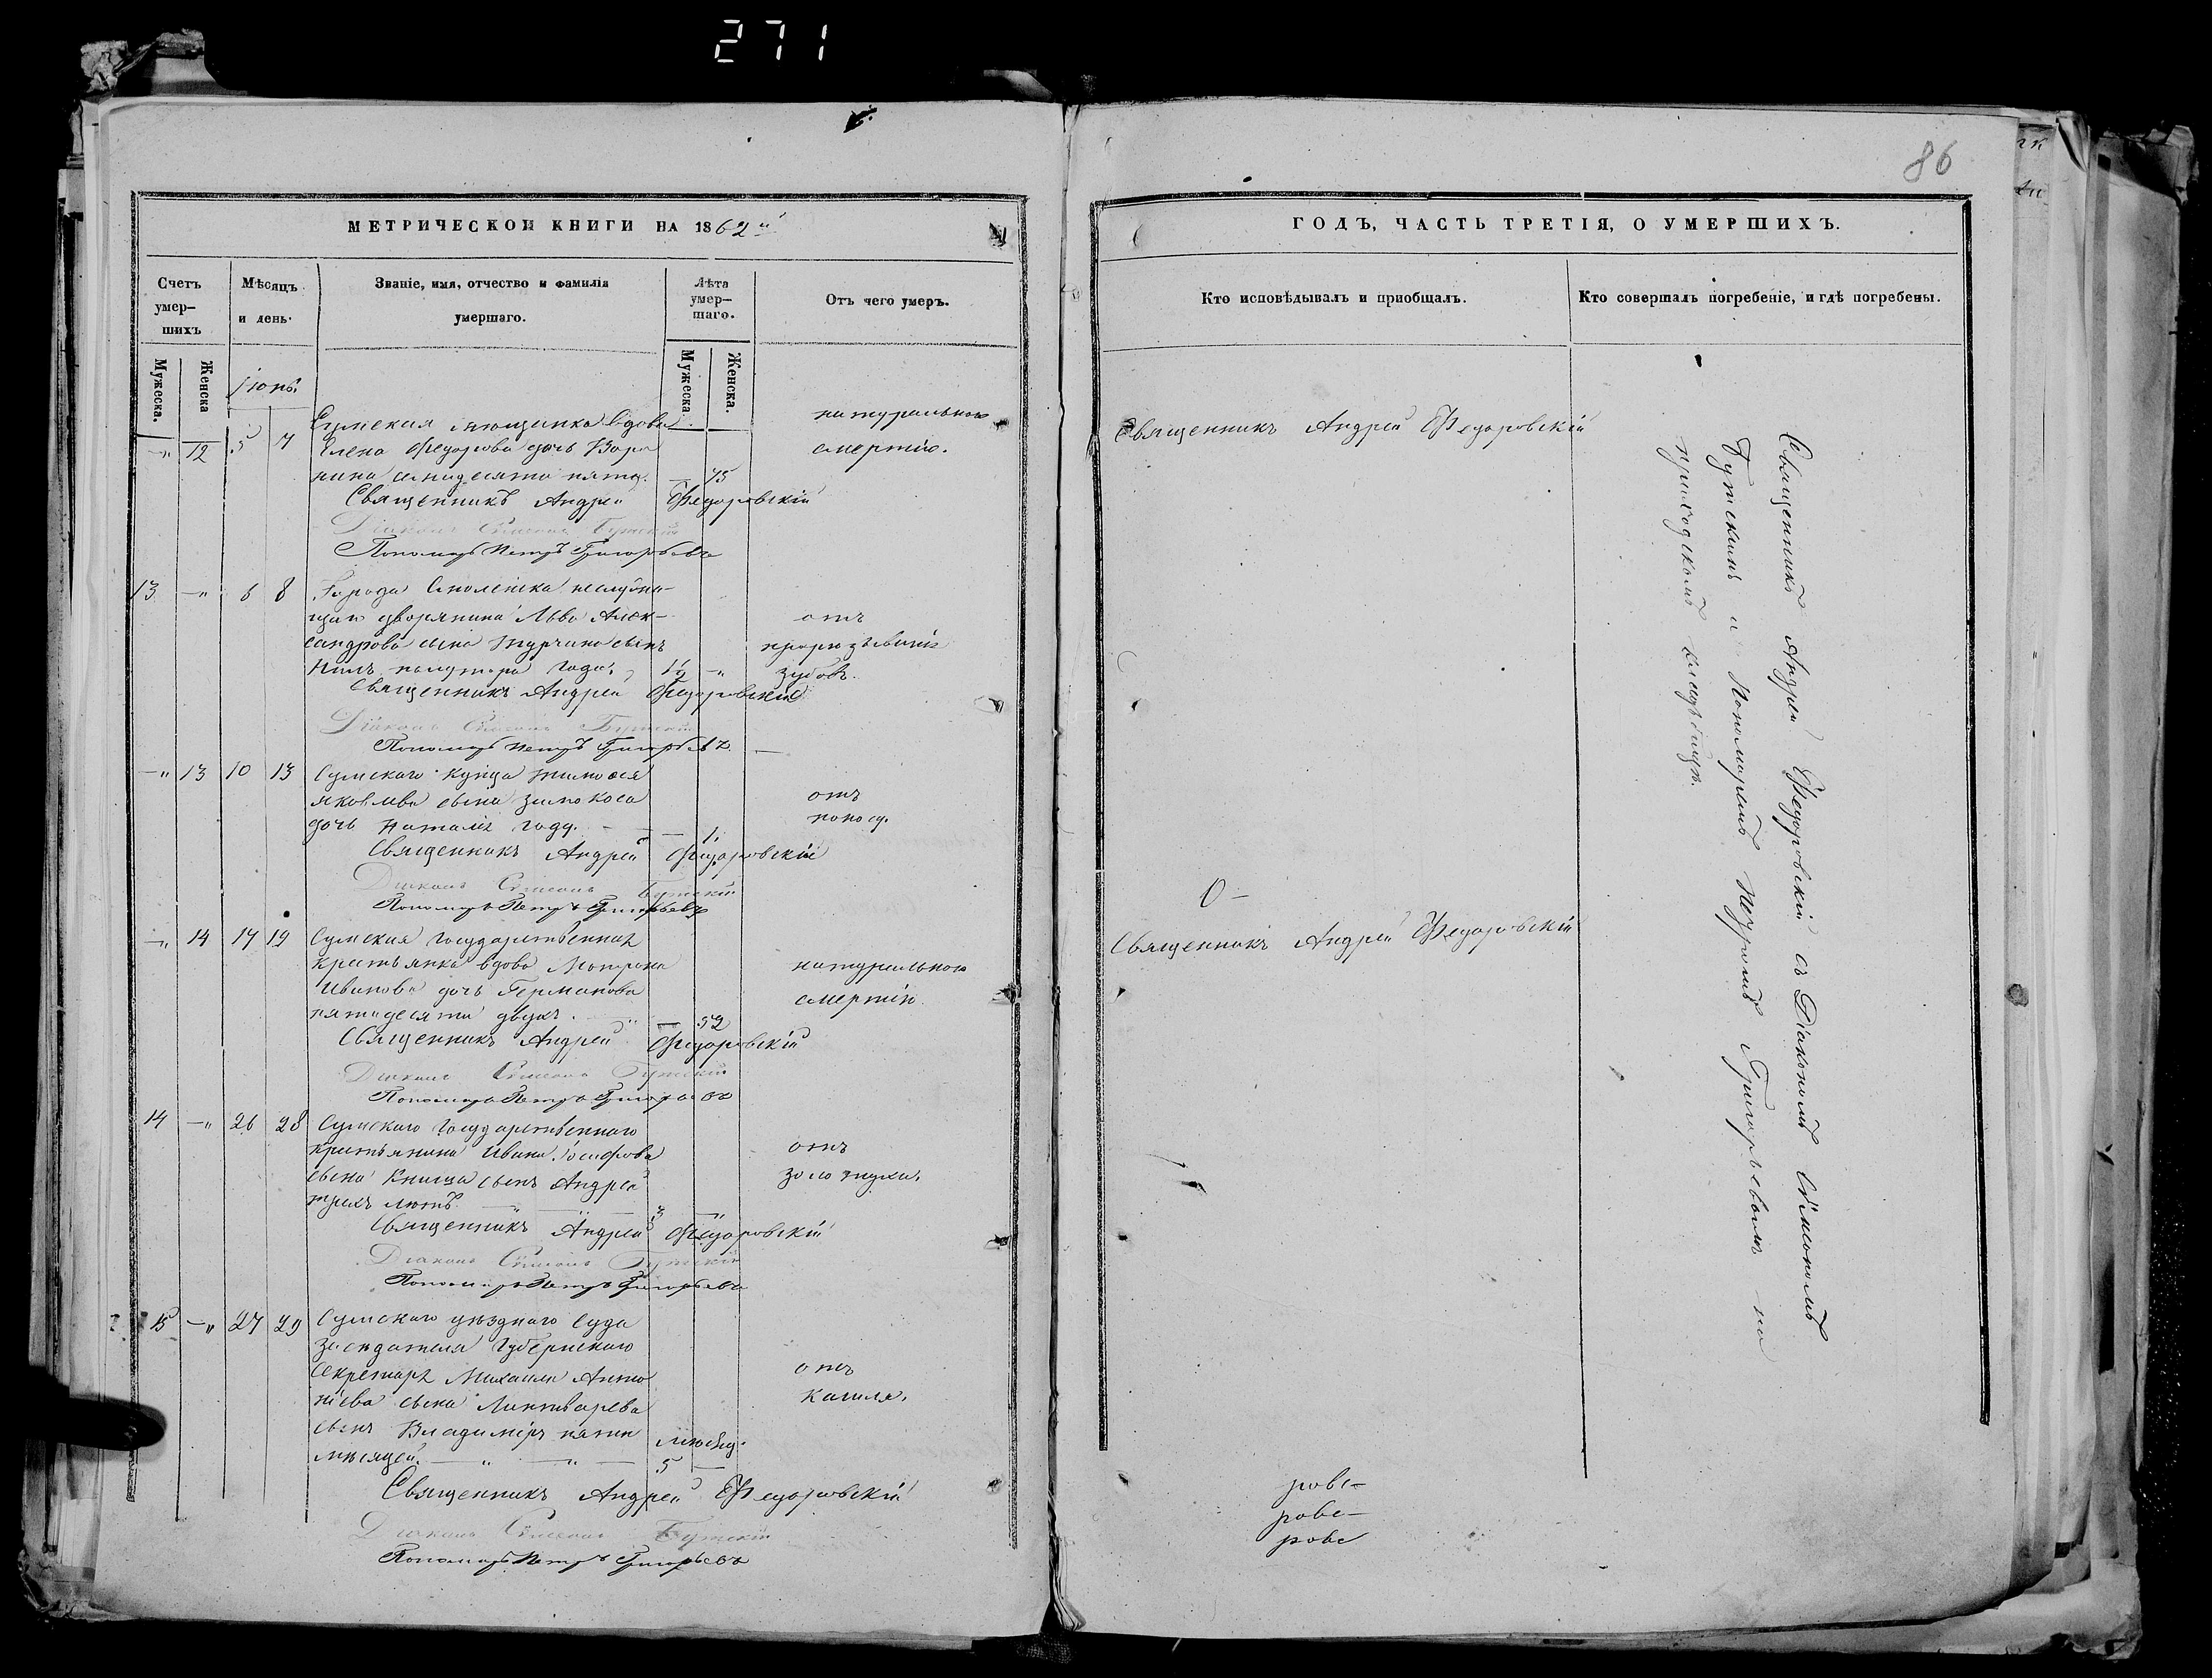 271
МЕТРИЧЕСКОЙ КНИГИ НА 1862й
Счетъ умер-шихъ
Мѣсяцъ и день.
Званіе, имя, отчество и фамилія умершаго.
Лѣта умер-шаго.
Отъ чего умеръ.
Мужеска.
Женска
Мужеска.
Женска.
Іюнь.
Сумская мющанка вдова
натуральною
-„ 12 5 7 Елена Федорова дочь Воро
смертію.
нина семидесяти пяти. — 75
Священникъ Андрей Федоровскій
Діаконъ Симеонъ Бутскій
Пономарь Петръ Григорьевъ
13 -„ 6 8 Города Смоленска неслужа-
щаго дворянина Льва Алек-
отъ
сандрова сына Турчина сынъ
прорюзыванія
Нилъ полутора года. 1½ -„
зубовъ.
Священникъ Андрей Федоровскій
Діаконъ Симеонъ Бутскій
Пономарь Петръ Григорьевъ
-„ 13 10 13 Сумскаго купца Тимофея
Яковлева сына Зимокоса
отъ
дочь Наталія году. — 1.
поносу.
Священникъ Андрей Федоровскій
Діаконъ Симеонъ Бутскій
Пономарь Петръ Григорьевъ
-„ 14 17 19 Сумская Государственная
крестьянка вдова Мотрона
натуральною
Иванова дочь Германова
смертію.
пятидесяти двухъ. „ — 52
Священникъ Андрей Федоровскій
Діаконъ Симеонъ Бутскій
Пономарь Петръ Григорьевъ
14 -„ 26 28 Сумскаго Государственнаго
крестьянина Ивана Іосифова
отъ
сына Книша сынъ Андрей
золотухи.
трехъ лютъ. 3 -„
Священникъ Андрей Федоровскій
Діаконъ Симеонъ Бутскій
Пономарь Петръ Григорьевъ
15 -„ 27 29 Сумскаго уюзднаго Суда
засюдателя Губернскаго
Секретаря Михаила Анто
отъ
ніева сына Линтварева
кашля.
сынъ Владиміръ пяти
мюсяцей. „ „ — 5 —
Священникъ Андрей Федоровскій
Діаконъ Симеонъ Бутскій
Пономарь Петръ Григорьевъ
86
ГОДЪ, ЧАСТЬ ТРЕТІЯ, О УМЕРШИХЪ.
Кто исповѣдывалъ и пріобщалъ.
Кто совершалъ погребеніе, и гдѣ погребены.
Священникъ Андрей Федоровскій
0 –
Священникъ Андрей Федоровскій
Священникъ Андрей Федоровскій съ Діакономъ Сѵмеономъ
Бутскимъ и Пономаремъ Петромъ Григорьевымъ на
приходскомъ кладбищѣ.
рове-
рове-
рове